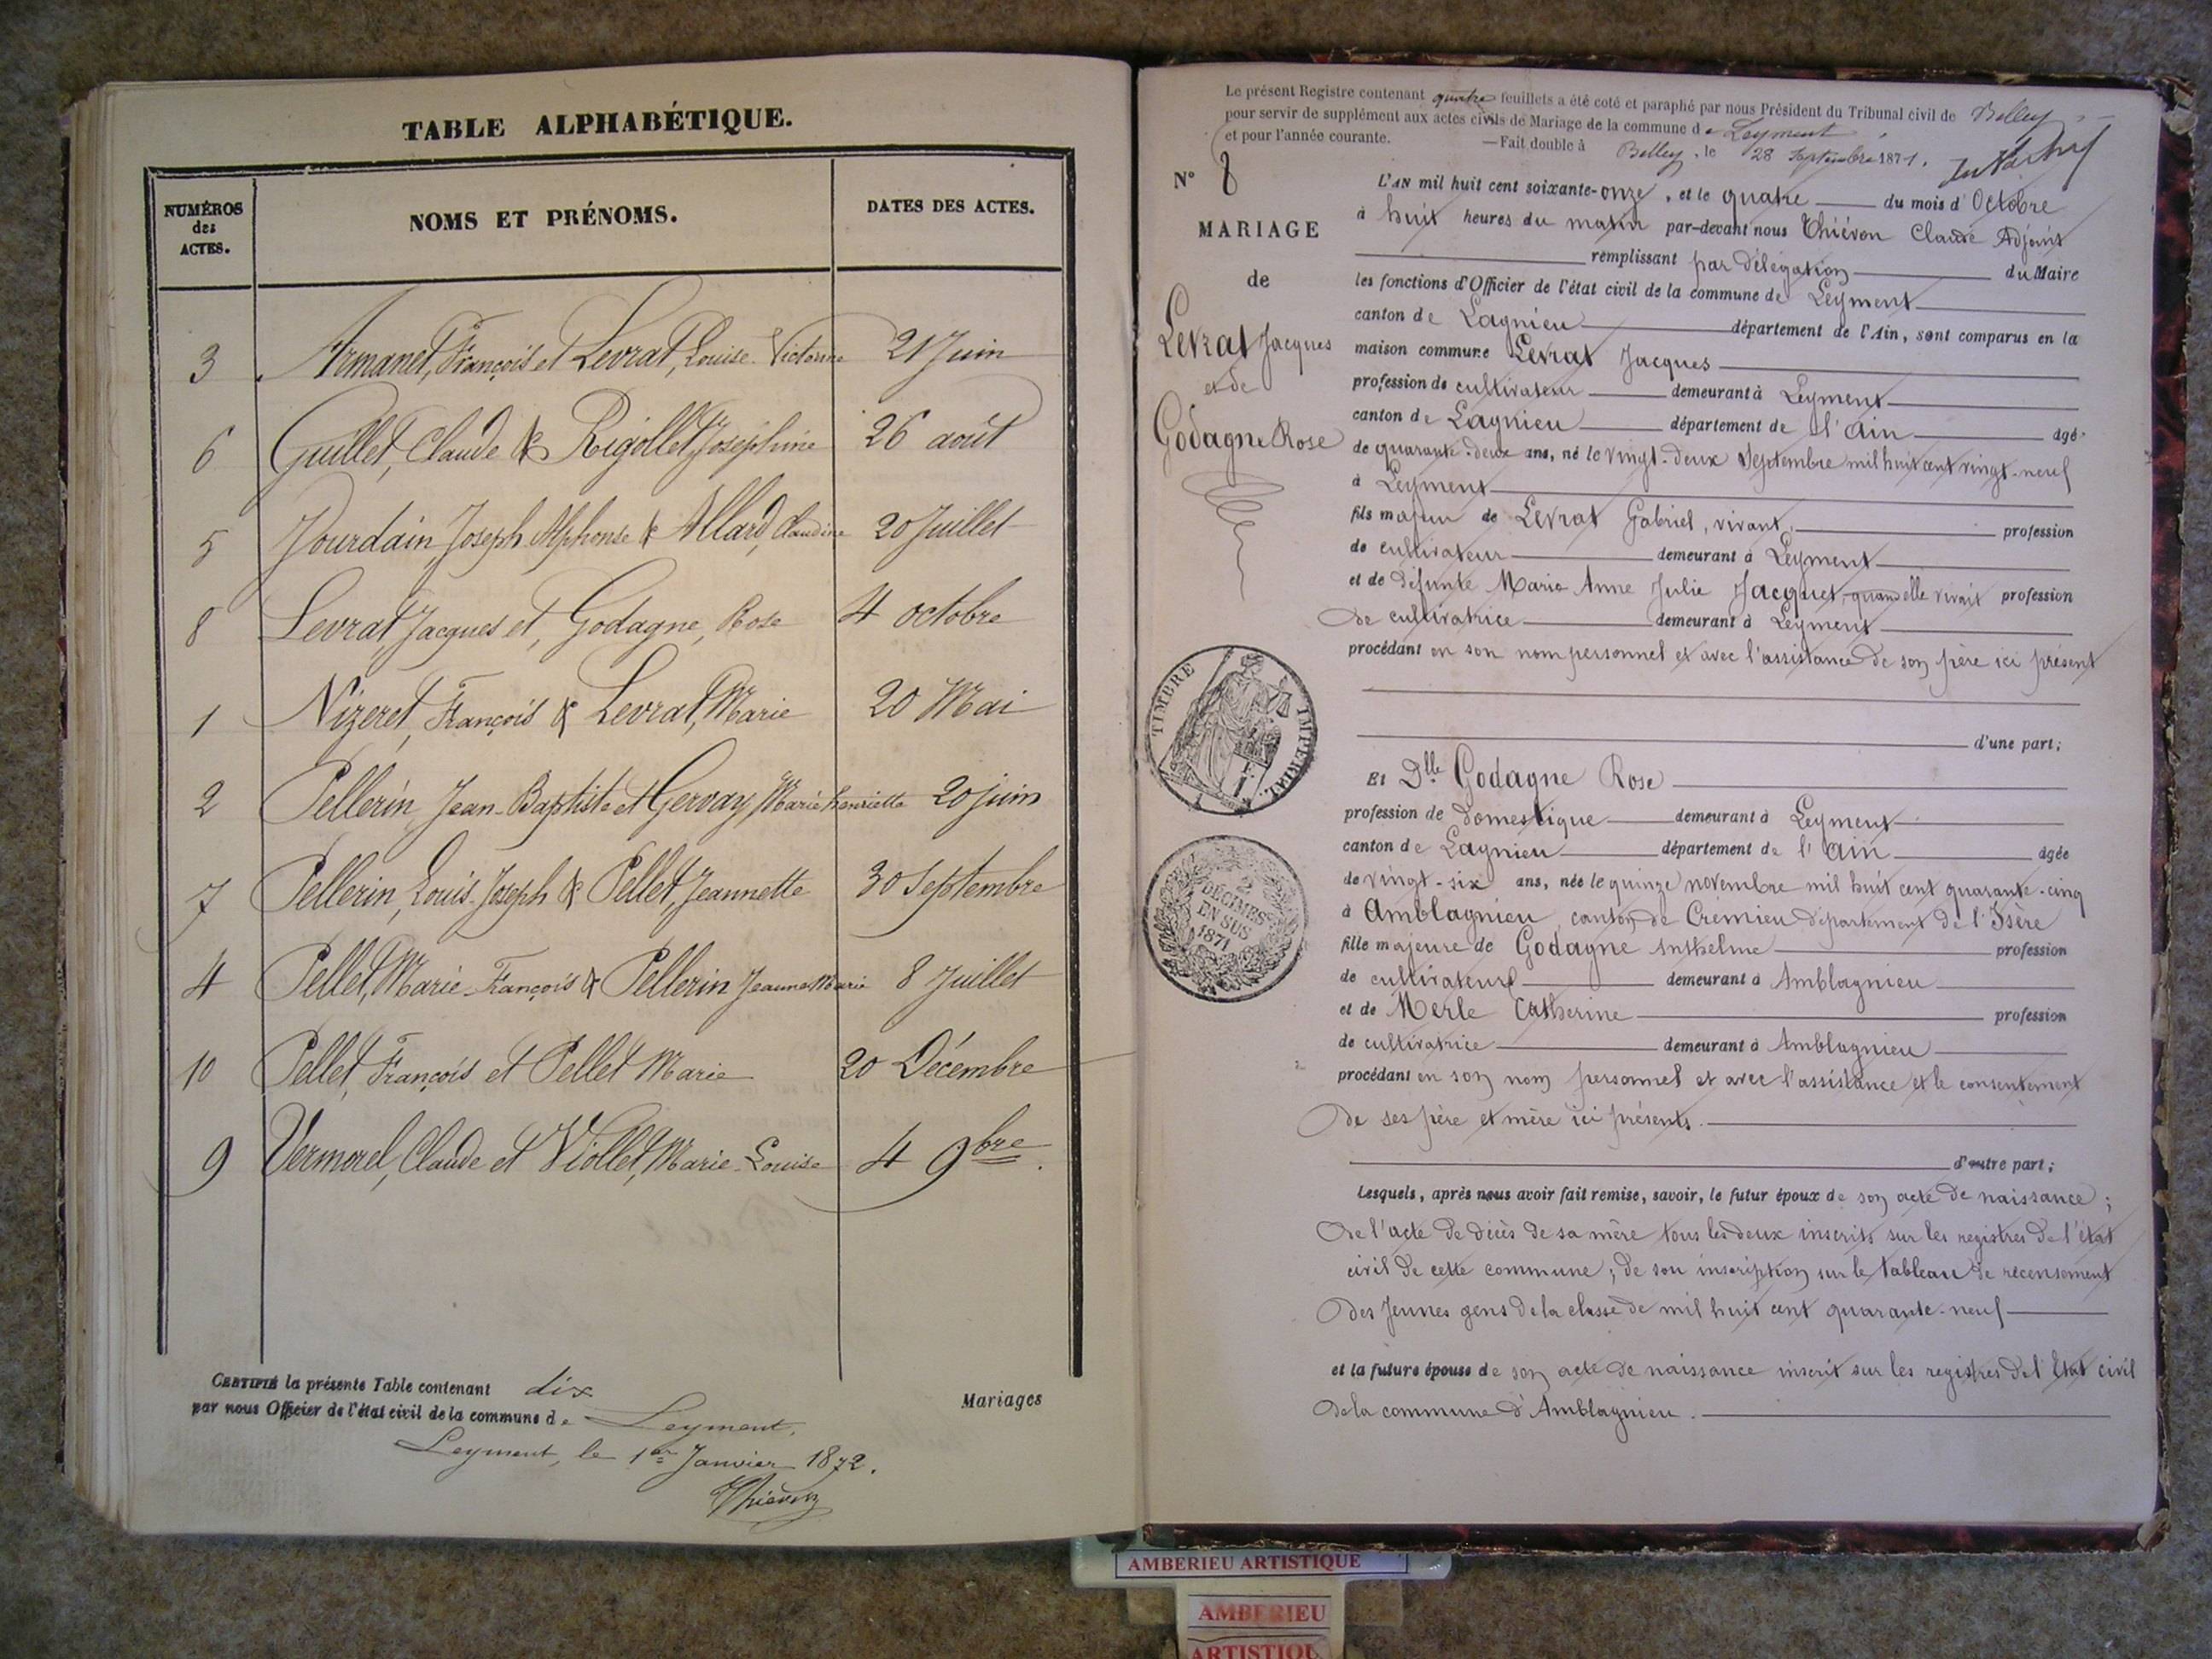 TABLE ALPHABÉTIQUE.
NUMÉROS des ACTES.
NOMS ET PRÉNOMS.
DATES DES ACTES.
3 Armanet, François et Levrat, Louise-Victorine 21 Juin
6 Guillet, Claude & Rigollet, Joséphine 26 août
5 Jourdain, Joseph Alphonse & Allard, Claudine 20 Juillet
8 Levrat, Jacques et, Godagne, Rose 4 octobre
1 Nizeret, François & Levrat, Marie 20 Mai
2 Pellerin, Jean-Baptiste et Gervay Marie henriette 20 juin
7 Pellerin, Louis-Joseph & Pellet, Jeannette 30 Septembre
4 Pellet, Marie-François & Pellerin Jeanne Marie 8 Juillet
10 Pellet, François et Pellet Marie 20 Décembre
9 Vermorel, Claude et Viollet, Marie-Louise 4 9bre.
CERTIFIÉ la présente Table contenant dix Mariages
par nous Officier de l'état civil de la commune de Leyment.
Leyment, le 1er Janvier 1872.
Thiévon
Le présent Registre contenant quatre feuillets a été coté et paraphé par nous Président du Tribunal civil de Belley
pour servir de supplément aux actes civils de Mariage de la commune de Leyment
et pour l'année courante. —Fait double à Belley, le 28 Septembre 1871.
N° 8
MARIAGE
de
Levrat Jacques
et de
Godagne Rose
L'AN mil huit cent soixante-onze, et le quatre du mois d'Octobre
à huit heures du matin par-devant nous Thiévon Claude Adjoint
remplissant par délégation du Maire
les fonctions d'Officier de l'état civil de la commune de Leyment
canton de Lagnieu département de l'Ain, sont comparus en la
maison commune Levrat Jacques
profession de cultivateur demeurant à Leyment
canton de Lagnieu département de l'Ain agé
de quarante-deux ans, né le vingt-deux Septembre mil huit cent vingt-neuf
à Leyment
fils majeur de Levrat Gabriel, vivant, profession
de cultivateur demeurant à Leyment
et de défunte Marie Anne Julie Jacquet, quand elle vivait profession
de cultivatrice demeurant à Leyment
procédant en son nom personnel et avec l'assistance de son père ici présent
d'une part;
TIMBRE IMPERIAL
Et Dlle Godagne Rose
profession de domestique demeurant à Leyment
canton de Lagnieu département de l'Ain agée
de vingt-six ans, née le quinze novembre mil huit cent quarante-cinq
à Amblagnieu, canton de Crémieu département de l'Isère
fille majeure de Godagne Anthelme profession
de cultivateur demeurant à Amblagnieu
et de Merle Catherine profession
de cultivatrice demeurant à Amblagnieu
procédant en son nom personnel et avec l'assistance et le consentement
de ses père et mère ici présents.
d'autre part;
2 DÉCIMES EN SUS 1871
Lesquels, après nous avoir fait remise, savoir, le futur époux de son acte de naissance;
de l'acte de décès de sa mère tous les deux inscrits sur les registres de l'état
civil de cette commune; de son inscription sur le tableau de recensement
des Jeunes gens de la classe de mil huit cent quarante-neuf
et la future épouse de son acte de naissance inscrit sur les registres de l'Etat civil
de la commune d'Amblagnieu.
AMBERIEU ARTISTIQUE
AMBERIEU
ARTISTIQU